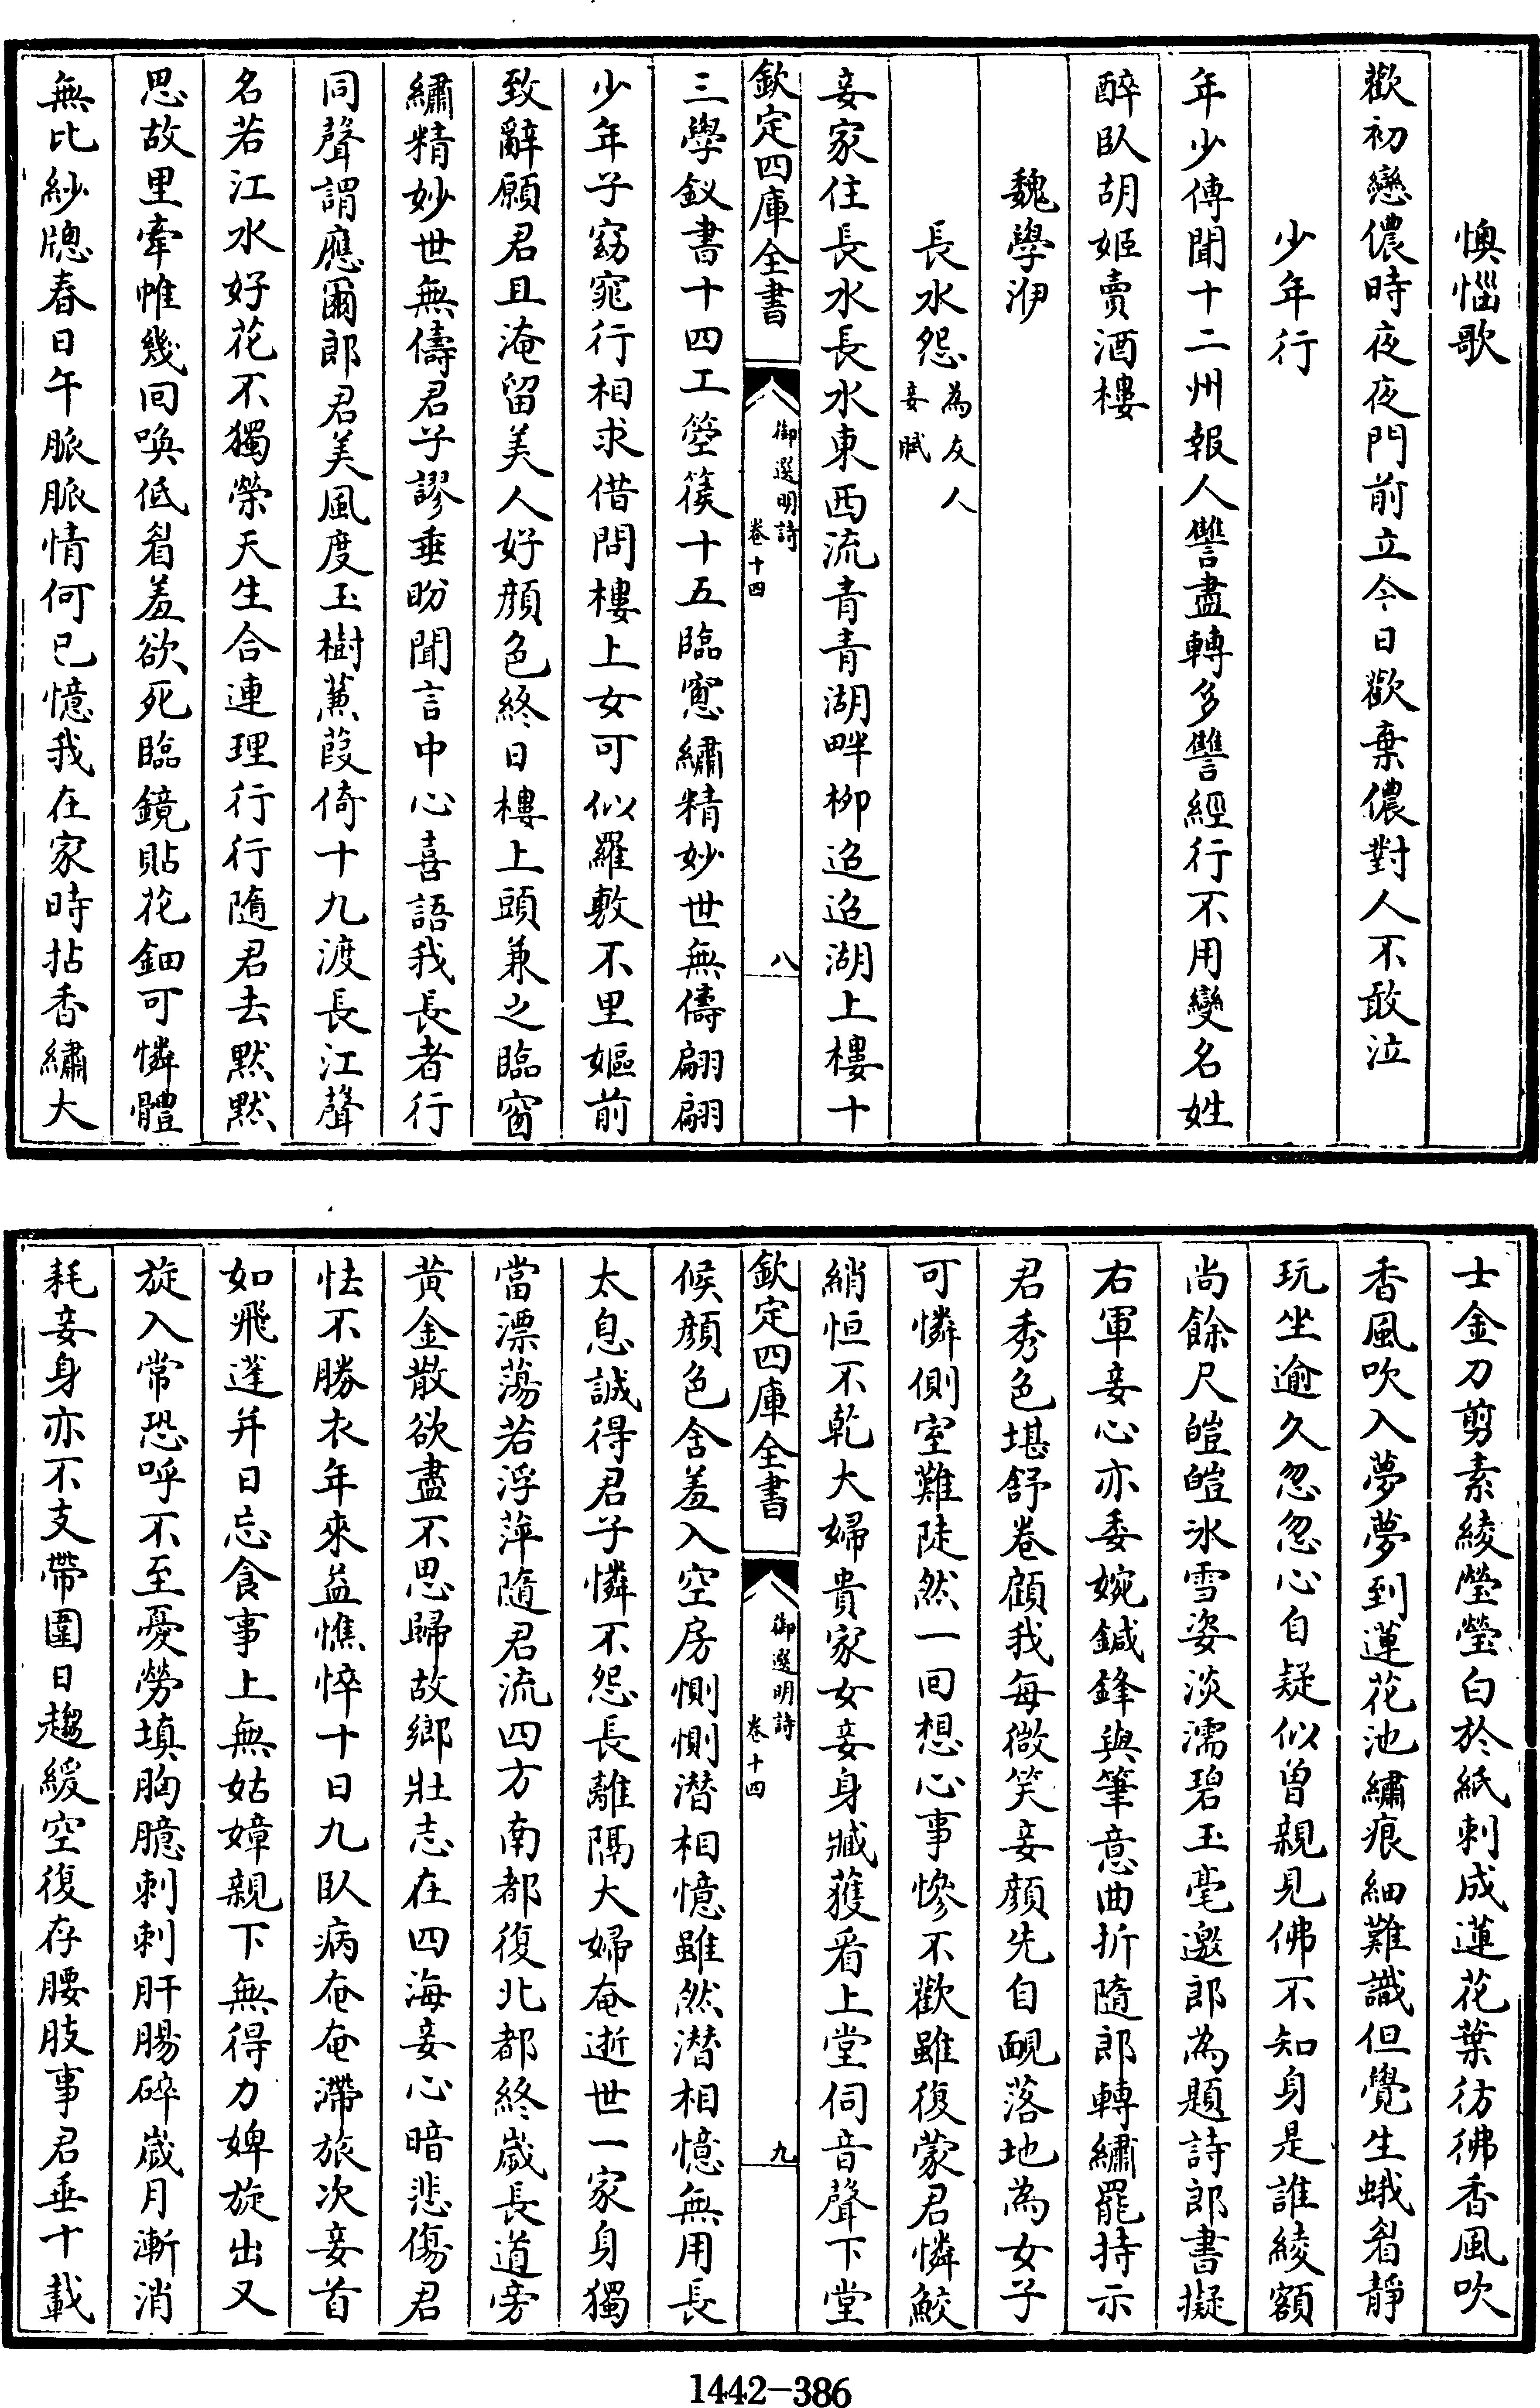 懊惱歌
歡初戀儂時夜夜門前立今日歡棄儂對人不敢泣
少年行
年少傳聞十二州報人讐盡轉多讐經行不用變名姓
醉臥胡姬賣酒樓
魏學洢
長水怨為友人妾賦
妾家住長水長水東西流青青湖畔柳迢迢湖上樓十
欽定四庫全書
御選明詩
卷十四
八
三學釵書十四工箜篌十五臨窻繡精妙世無儔翩翩
少年子窈窕行相求借問樓上女可似羅敷不里嫗前
致辭願君且淹留美人好顔色終日樓上頭兼之臨窗
繡精妙世無儔君子謬垂盼聞言中心喜語我長者行
同聲謂應爾郎君美風度玉樹蒹葭倚十九渡長江聲
名若江水好花不獨榮天生合連理行行隨君去黙黙
思故里牽帷幾回喚低眉羞欲死臨鏡貼花鈿可憐體
無比紗牕春日午脈脈情何已憶我在家時拈香繡大
士金刀剪素綾瑩瑩白於紙刺成蓮花葉彷彿香風吹
香風吹入夢夢到蓮花池繡痕細難識但覺生蛾眉靜
玩坐逾久忽忽心自疑似曾親見佛不知身是誰綾額
尚餘尺皚皚冰雪姿淡濡碧玉毫邀郎為題詩郎書擬
右軍妾心亦委婉鍼鋒與筆意曲折隨郎轉繡罷持示
君秀色堪舒卷顧我每微笑妾顔先自靦落地為女子
可憐側室難陡然一回想心事慘不歡雖復蒙君憐鮫
綃恒不乾大婦貴家女妾身臧獲看上堂伺音聲下堂
欽定四庫全書
御選明詩
卷十四
九
候顔色含羞入空房惻惻潜相憶雖然潜相憶無用長
太息誠得君子憐不怨長離隔大婦奄逝世一家身獨
當漂蕩若浮萍隨君流四方南都復北都終歲長道旁
黃金散欲盡不思歸故鄉壯志在四海妾心暗悲傷君
怯不勝衣年來益憔悴十日九臥病奄奄滯旅次妾首
如飛蓬并日忘食事上無姑嫜親下無得力婢旋出又
旋入常恐呼不至憂勞填胸臆刺刺肝腸碎歲月漸消
耗妾身亦不支帶圍日趨緩空復存腰肢事君垂十載
1442-386